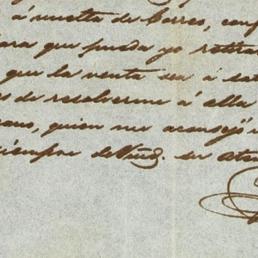 á vuelta de Correo, conf
para que pueda yo retira
que la venta sea á sat
de resolverme á ella
ano, quien me aconsejó
siempre de Vmd. su aten